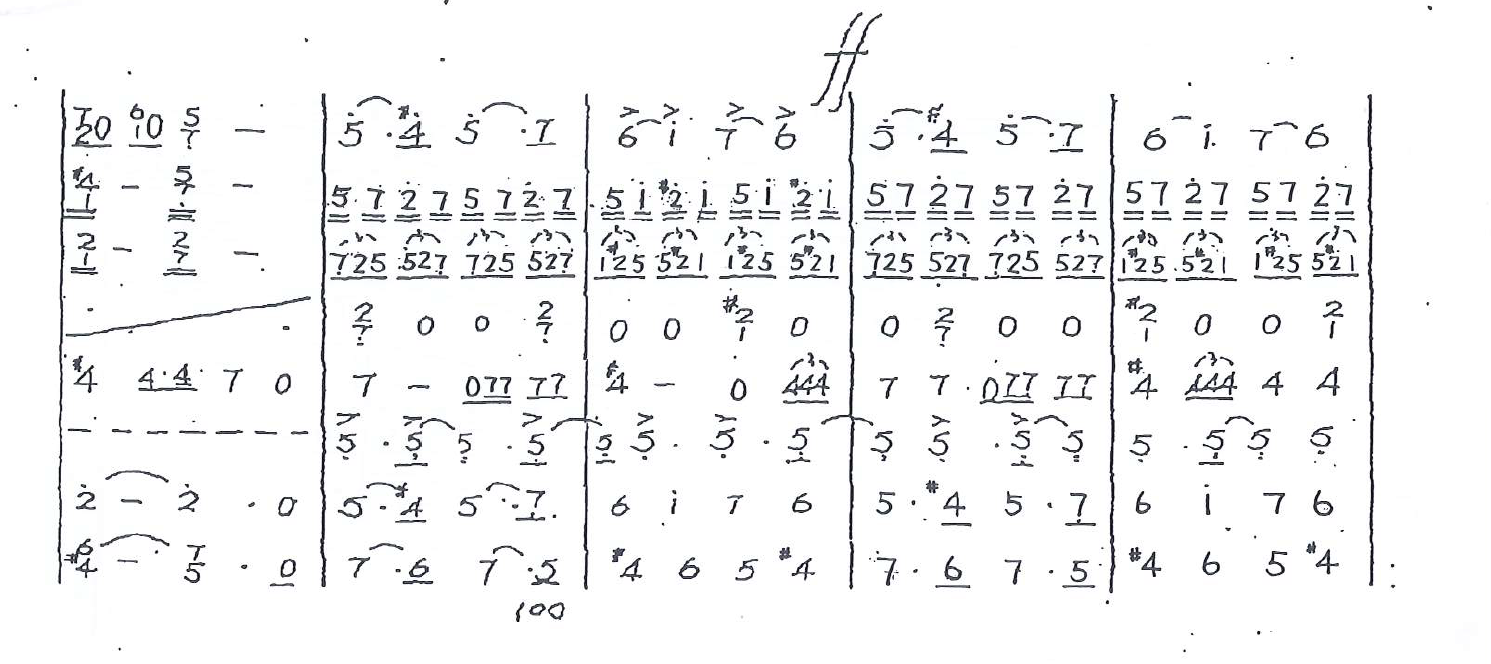 ff
| 7/2 0 6/1 0 5/7 – | 5̇ · #4̇ 5̇ · 7 | 6 i 7 6 | 5̇ · #4 5̇ · 7 | 6 i 7 6 |
| #4/1 – 5/7 – | 5 7 2̇ 7 5 7 2̇ 7 | 5 i #2̇ i 5 i #2̇ i | 5 7 2̇ 7 5 7 2̇ 7 | 5 7 2̇ 7 5 7 2̇ 7 |
| 2/1 – 2/7 – | 725 527 725 527 | 1#25 5#21 1#25 5#21 | 725 527 725 527 | 1#25 5#21 1#25 5#21 |
| 2/7 0 0 2/7 | 0 0 #2/1 0 | 0 2/7 0 0 | #2/1 0 0 2/1 |
| #4 4·4 7 0 | 7 – 077 77 | #4 – 0 444 | 7 7 · 077 77 | #4 444 4 4 |
| – – – – – – – | 5̣ · 5̣ 5̣ · 5̣ | 5̣ 5̣ · 5̣ · 5̣ | 5̣ 5̣ · 5̣ 5̣ | 5̣ · 5̣ 5̣ 5̣ |
| 2̇ – 2̇ · 0 | 5 · #4 5 · 7 | 6 i 7 6 | 5 · #4 5 · 7 | 6 i 7 6 |
| #6/4 – 7/5 · 0 | 7 · 6 7 · 5 | #4 6 5 #4 | 7 · 6 7 · 5 | #4 6 5 #4 |
100